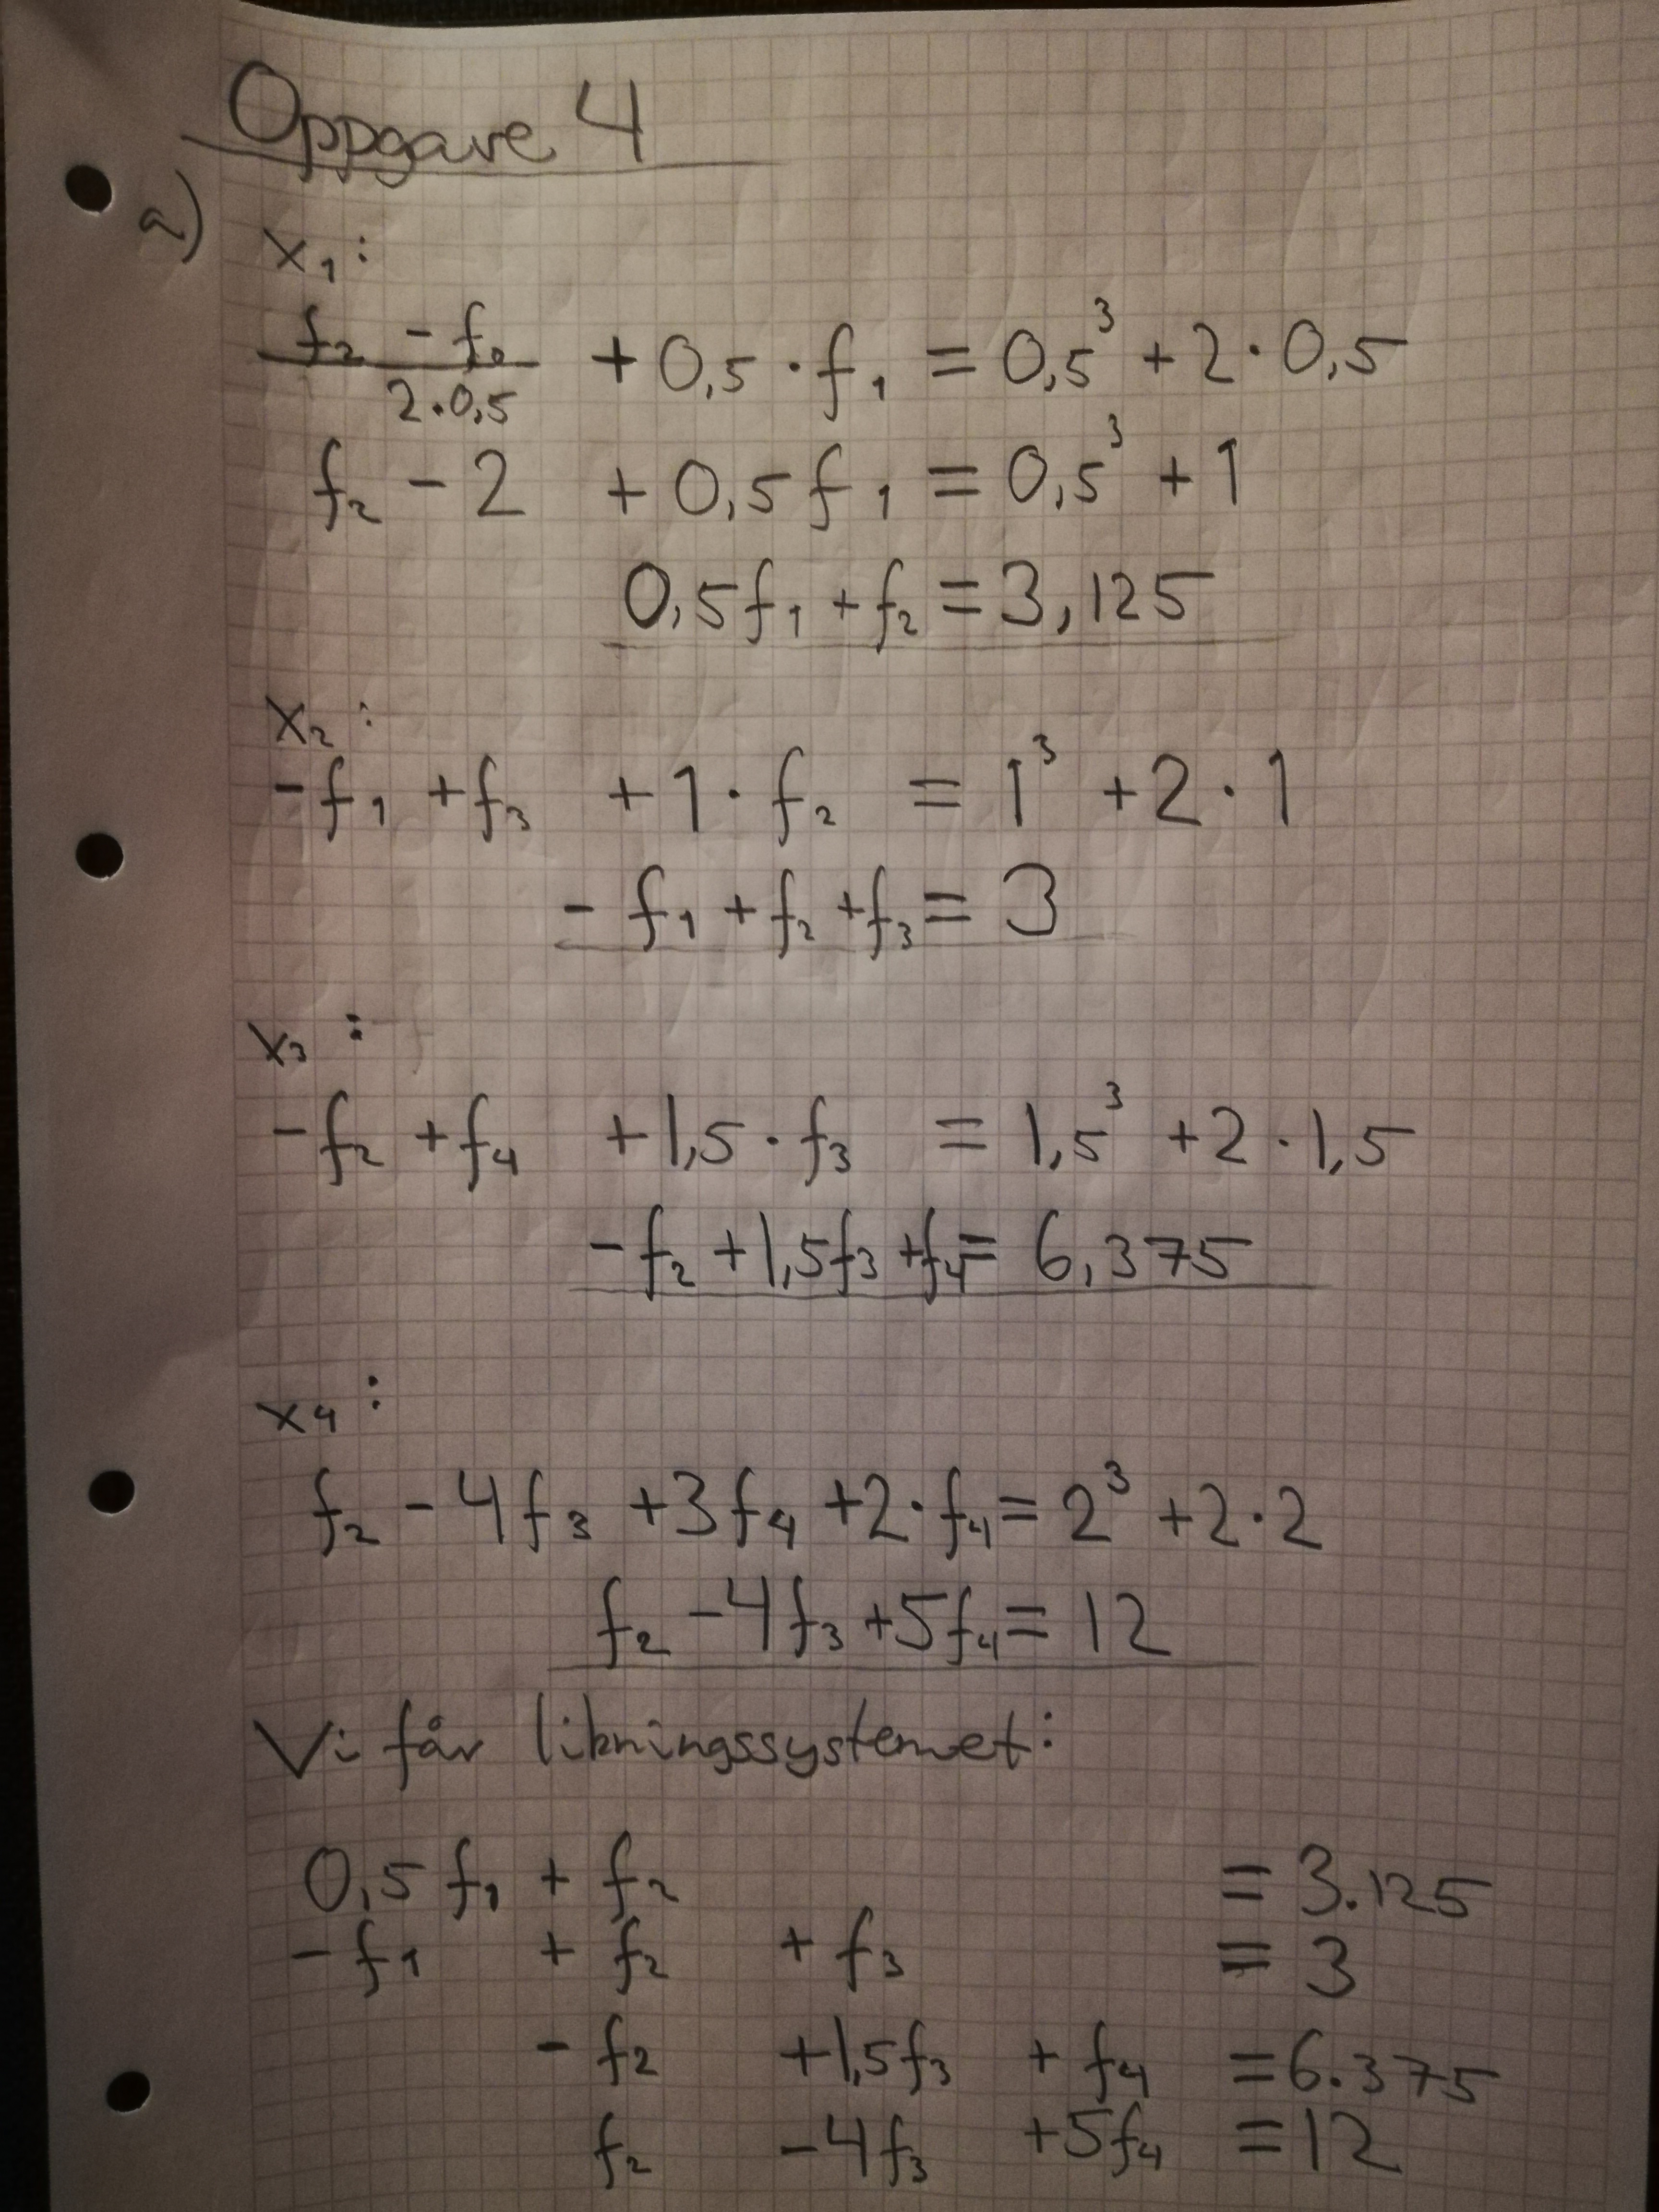 Oppgave 4
a)
x₁:
f₂ - f₀ / 2·0,5 + 0,5 · f₁ = 0,5³ + 2 · 0,5
f₂ - 2 + 0,5 f₁ = 0,5³ + 1
0,5f₁ + f₂ = 3,125
x₂:
-f₁ + f₃ + 1 · f₂ = 1³ + 2 · 1
- f₁ + f₂ + f₃ = 3
x₃:
-f₂ + f₄ + 1,5 · f₃ = 1,5³ + 2 · 1,5
-f₂ + 1,5f₃ + f₄ = 6,375
x₄:
f₂ - 4f₃ + 3f₄ + 2 · f₄ = 2³ + 2 · 2
f₂ - 4f₃ + 5f₄ = 12
Vi får likningssystemet:
0,5 f₁ + f₂ = 3.125
- f₁ + f₂ + f₃ = 3
- f₂ + 1,5f₃ + f₄ = 6.375
f₂ - 4f₃ + 5f₄ = 12